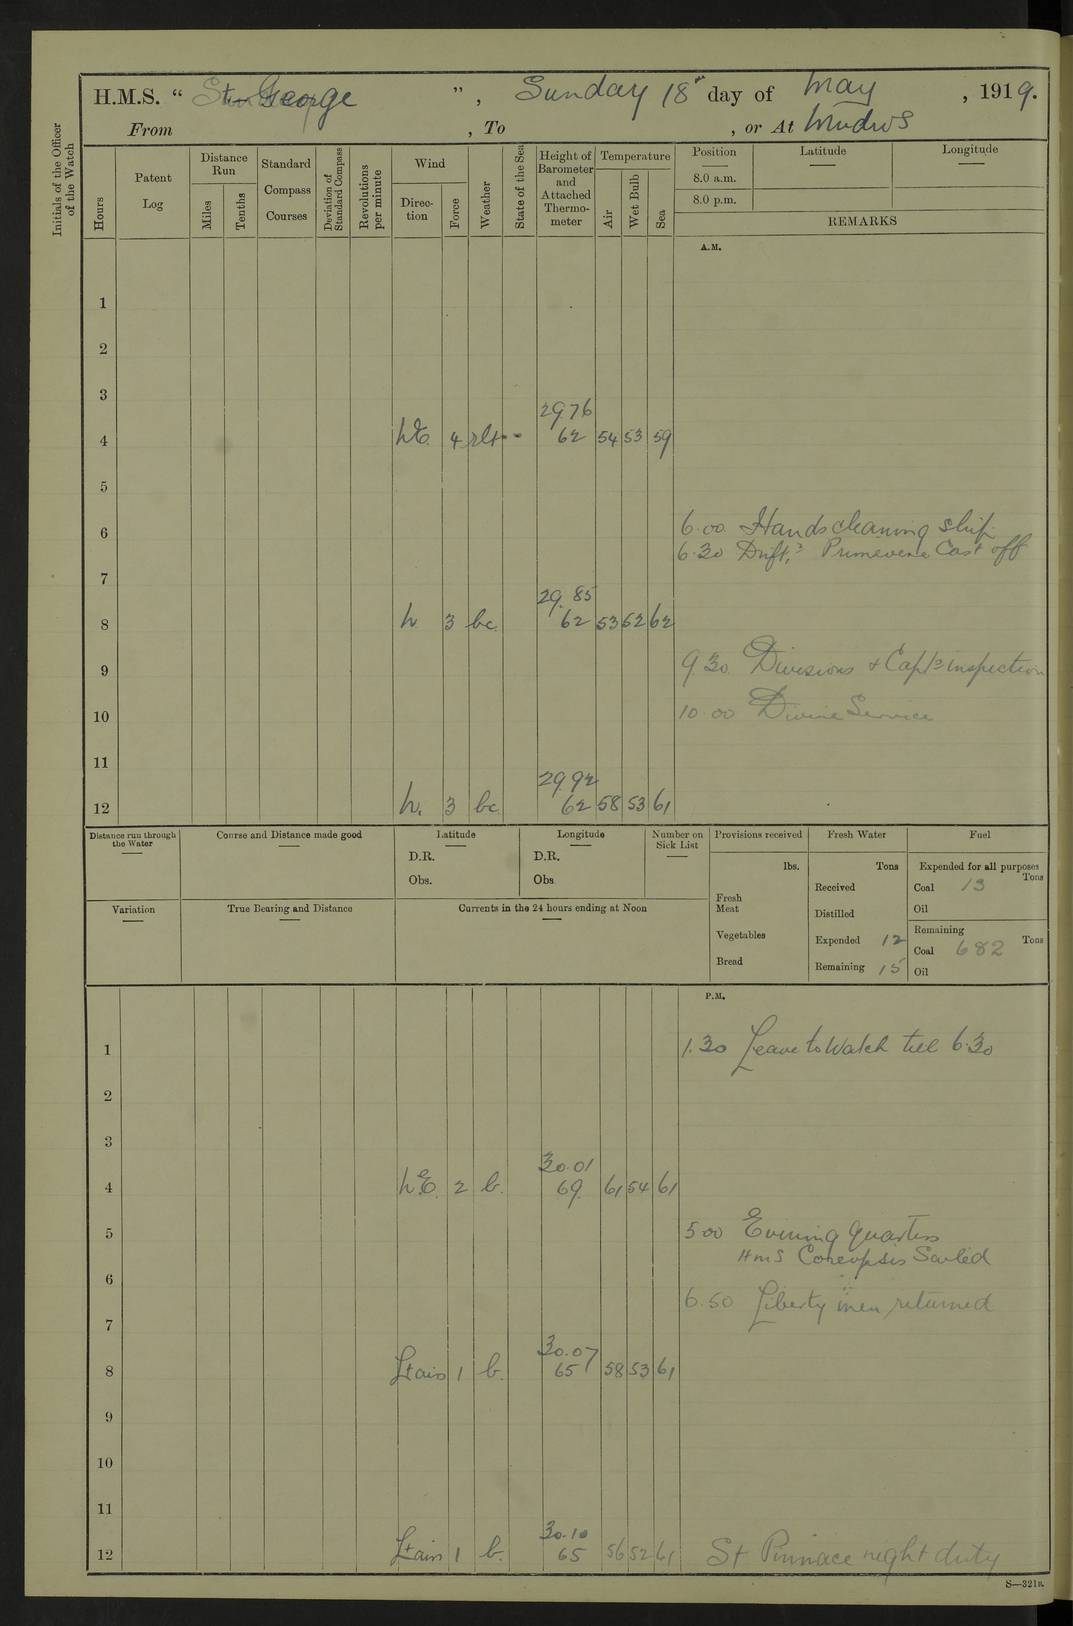 H.M.S. “ St. George ” , Sunday 18th day of May , 1919.
From , To , or At Mudros
Initials of the Officer of the Watch
Hours
Patent Log
Distance Run
Miles
Tenths
Standard Compass Courses
Deviation of Standard Compass
Revolutions per minute
Wind
Direction
Force
Weather
State of the Sea
Height of Barometer and Attached Thermometer
Temperature
Air
Wet Bulb
Sea
Position
Latitude
Longitude
8.0 a.m.
8.0 p.m.
REMARKS
A.M.
1
2
3
29 76
4 NE. 4 62 54 53 59
5
6 6.00 Hands cleaning ship
6.30 Drift. Primevere Cast off
7
29.85
8 N 3 bc. 62 53 52 62
9 9.30 Divisions + Capts inspection
10 10.00 Divine Service
11
29.92
12 N. 3 bc 62 58 53 61
Distance run through the Water
Course and Distance made good
Latitude
D.R.
Obs.
Longitude
D.R.
Obs.
Number on Sick List
Provisions received
lbs.
Fresh Meat
Vegetables
Bread
Fresh Water
Tons
Received
Distilled
Expended 12
Remaining 15
Fuel
Expended for all purposes
Tons
Coal 13
Oil
Remaining
Tons
Coal 682
Oil
Variation
True Bearing and Distance
Currents in the 24 hours ending at Noon
P.M.
1 1.30 Leave to Watch till 6.30
2
3
30.01
4 N.E. 2 b. 69 61 54 61
5 5 00 Evening Quarters
HMS Coreopsis Sailed
6
6.50 Liberty men returned
7
30.07
8 Lt airs 1 b. 65 58 53 61
9
10
11
30.10
12 Lt airs 1 b. 65 56 52 61 St Pinnace night duty
S—321B.